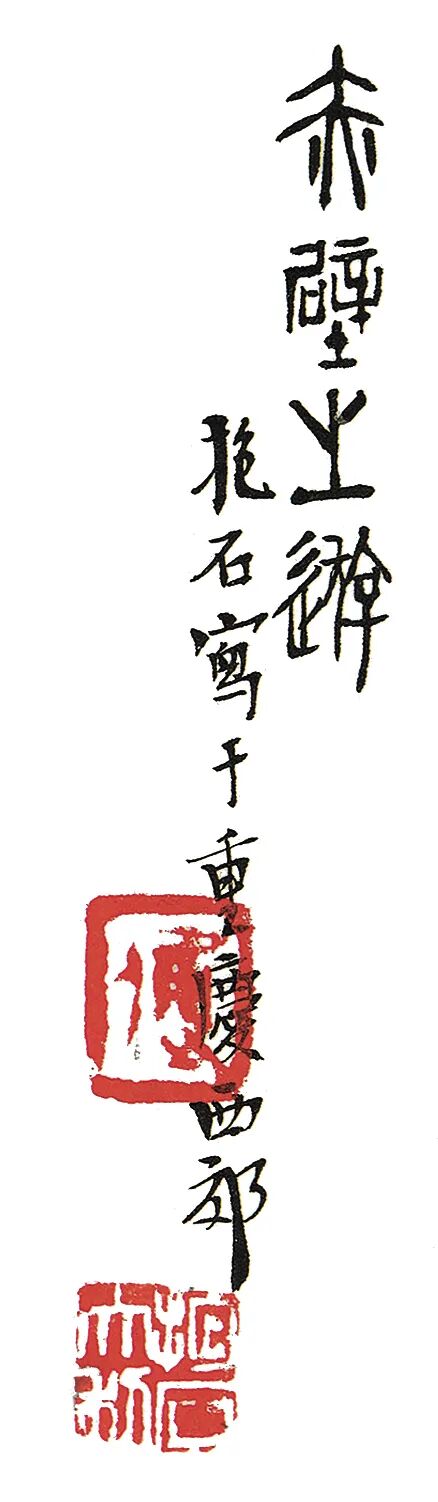 赤壁之遊
抱石寫于重慶西郊
傅
抱石大利